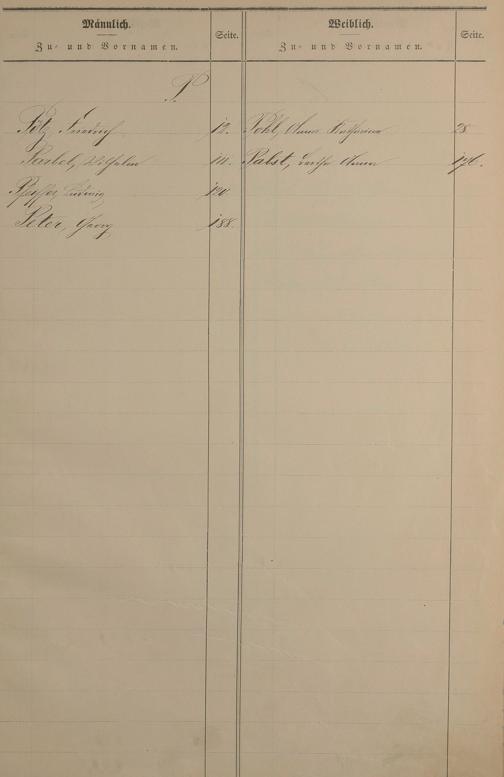 Männlich.
Zu- und Vornamen.
Seite.
P.
Pötz, Friedrich 12.
Wilhelm 111.
Pfeiffer, Ludwig 120.
Peter, Georg 188.
Weiblich.
Zu- und Vornamen.
Seite.
Pohl, Anna Katharina 28
Pabst, Anna 176.